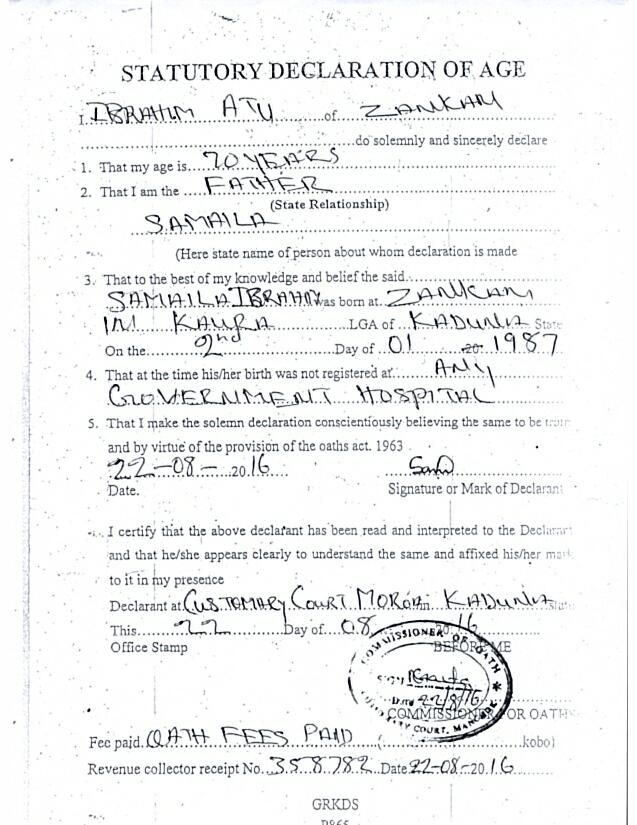 STATUTORY DECLARATION OF AGE
I IBRAHIM ATU of ZANKAM
do solemnly and sincerely declare
1. That my age is 70 YEARS
2. That I am the FATHER
(State Relationship)
SAMAILA
(Here state name of person about whom declaration is made
3. That to the best of my knowledge and belief the said
SAMAILA IBRAHIM was born at ZANKAM
IN KAURA LGA of KADUNA State
On the 2nd Day of 01 20 1987
4. That at the time his/her birth was not registered at ANY
GOVERNMENT HOSPITAL
5. That I make the solemn declaration conscientiously believing the same to be true
and by virtue of the provision of the oaths act. 1963
22-08-2016
Date. Signature or Mark of Declarant
I certify that the above declarant has been read and interpreted to the Declarant
and that he/she appears clearly to understand the same and affixed his/her mark
to it in my presence
Declarant at CUSTOMARY COURT in KADUNA State
This 22 Day of 08 2016
Office Stamp BEFORE ME
COMMISSIONER OF OATH
Date 22/8/16
COMMISSIONER FOR OATHS
Fee paid OATH FEES PAID ( kobo)
Revenue collector receipt No. 358782 Date 22-08-2016
GRKDS